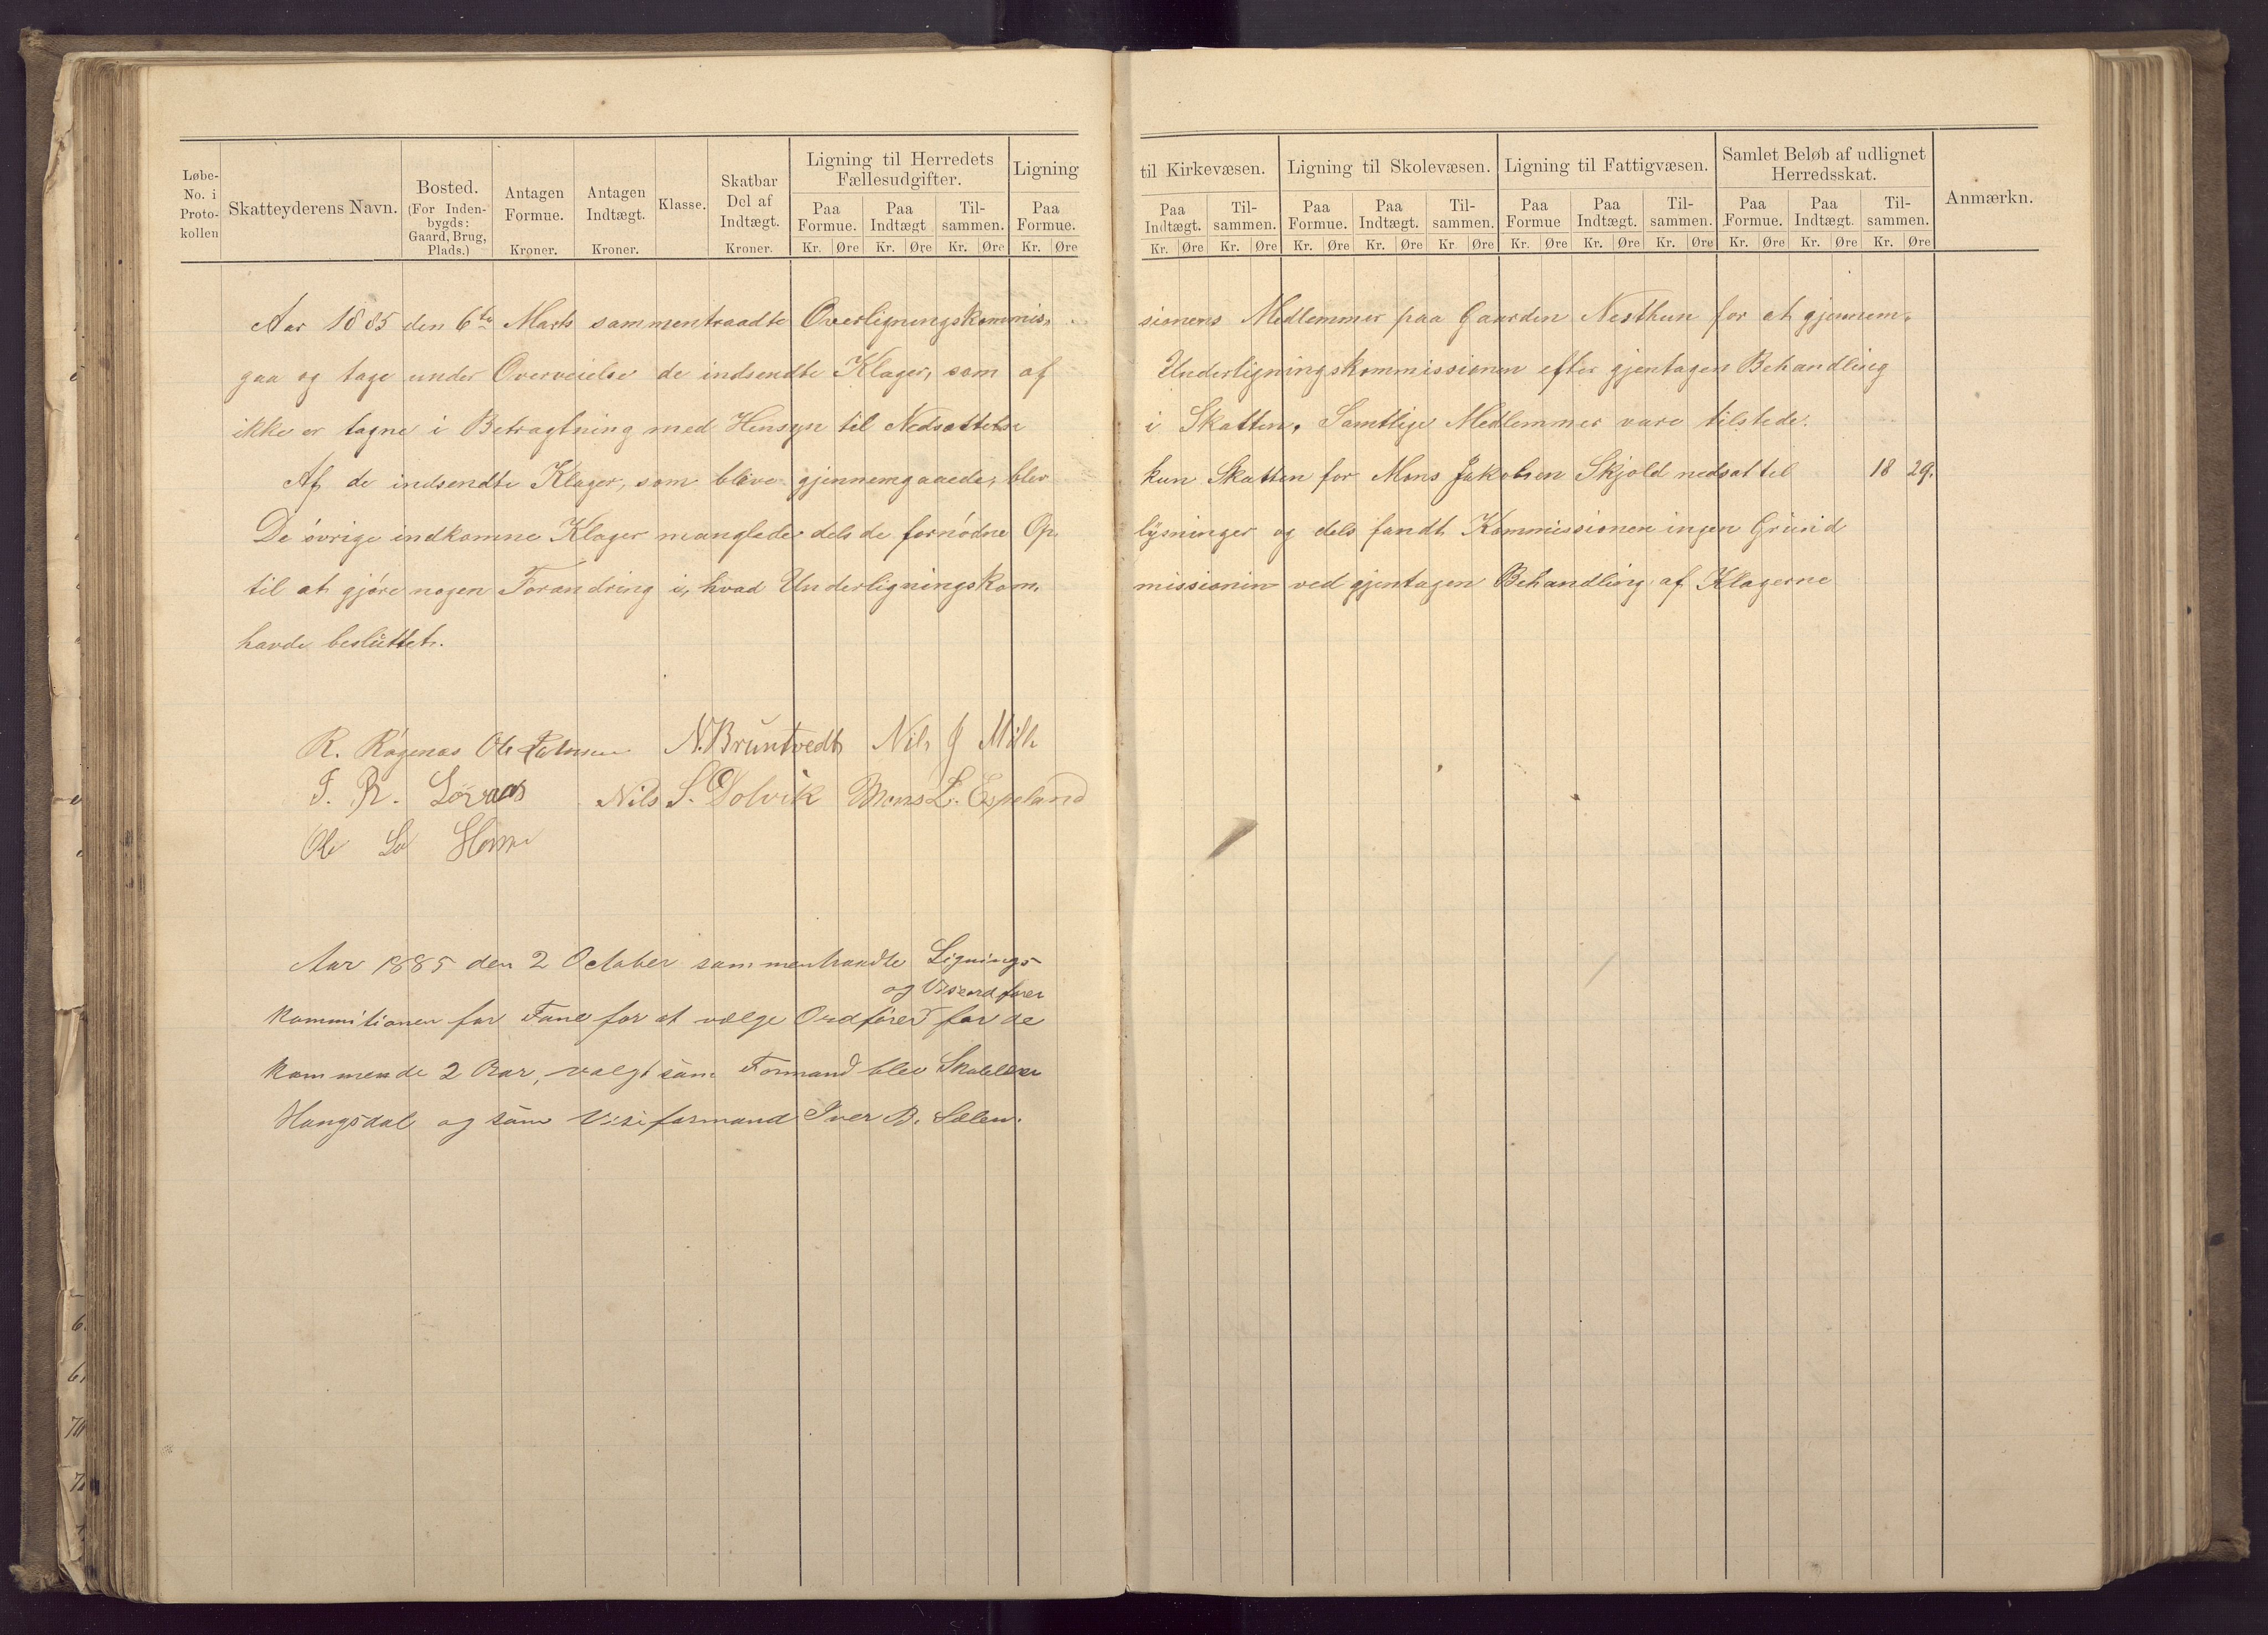 Løbe-No. i Proto-kollen
Skatteyderens Navn.
Bosted. (For Inden-bygds: Gaard, Brug, Plads.)
Antagen Formue. Kroner.
Antagen Indtægt. Kroner.
Klasse.
Skatbar Del af Indtægt. Kroner.
Ligning til Herredets Fællesudgifter.
Paa Formue. Paa Indtægt Til-sammen.
Kr. Øre Kr. Øre Kr. Øre
Ligning
Paa Formue.
Kr. Øre
til Kirkevæsen.
Paa Indtægt. Til-sammen.
Kr. Øre Kr. Øre
Ligning til Skolevæsen.
Paa Formue. Paa Indtægt. Til-sammen.
Kr. Øre Kr. Øre Kr Øre
Ligning til Fattigvæsen.
Paa Formue Paa Indtægt. Til-sammen.
Kr. Øre Kr. Øre Kr. Øre
Samlet Beløb af udlignet Herredsskat.
Paa Formue. Paa Indtægt. Til-sammen.
Kr. Øre Kr. Øre Kr. Øre
Anmærkn.
Aar 1885 den 6te Marts sammentraadte Overligningskommis- sionens Medlemmer paa Gaarden Nesthun for at gjennem-
gaa og tage under Overveielse de indsendte Klager, som af Underligningskommissionen efter gjentagen Behandling
ikke er tagne i Betragtning med Hensyn til Nedsættelse i Skatten. Samtlige Medlemmer vare tilstede.
Af de indsendte Klager, som bleve gjennemgaaede, blev kun Skatten for Mons Jakobsen Skjold nedsat til 18 29.
De øvrige indkomne Klager manglede dels de fornødne Op- lysninger og dels fandt Kommissionen ingen Grund
til at gjøre nogen Forandring i, hvad Underligningskom- missionin ved gjentagen Behandling af Klagerne
havde besluttet.
R. Røgenæs Ole N. Bruntvedt Nils J
F. R. Nils S. Dolvik Mons L. Espeland
Ole
Aar 1885 den 2 October sammentraadte Lignings-
og Viseordfører
kommitionen for Fane for at vælge Ordfører for de
kommende 2 Aar, valgt som Formand blev Skolelærer
Hangsdal og som Viseformand Iver B. Sælen.